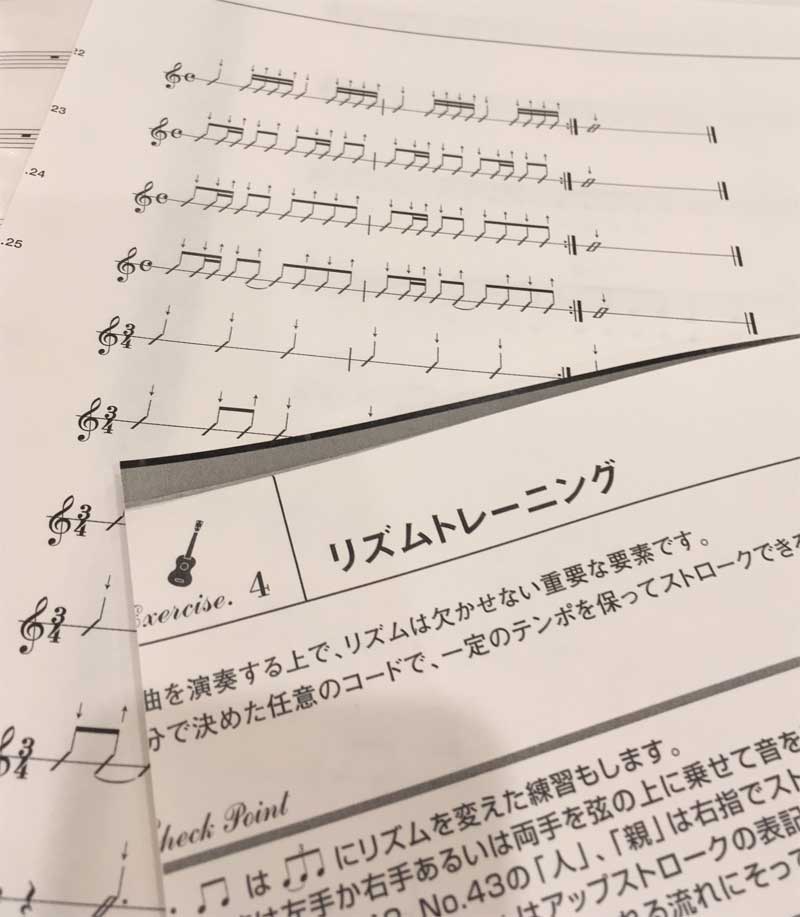 22
23
.24
.25
リズムトレーニング
Exercise. 4
曲を演奏する上で、リズムは欠かせない重要な要素です。
分で決めた任意のコードで、一定のテンポを保ってストロークでき
Check Point
は にリズムを変えた練習もします。
は左手か右手あるいは両手を弦の上に乗せて音を
No.43の「人」、「親」は右指でスト
はアップストロークの表記
る流れにそって